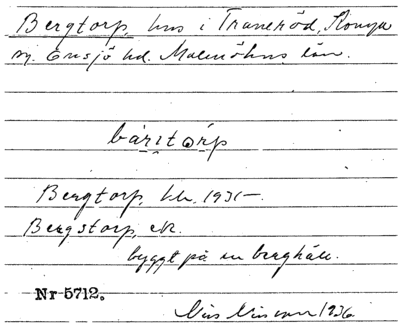 Bergtorp, hus i Traneröd, Konga
sn. Onsjö hd. Malmöhus län.
bärítórp
Bergtorp, kk. 1931-
Bergstorp, ek.
byggt på en berghäll.
Nr 5712.
Nils Nilsson 1936